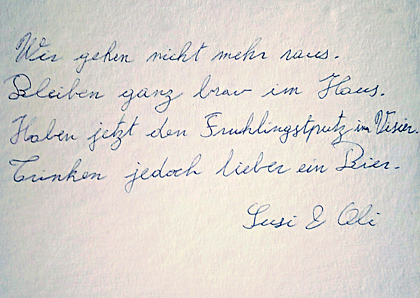 Wir gehen nicht mehr raus.
Bleiben ganz brav im Haus.
Haben jetzt den Fruhlingsputz im Visier.
Trinken jedoch lieber ein Bier.
Susi & Oli